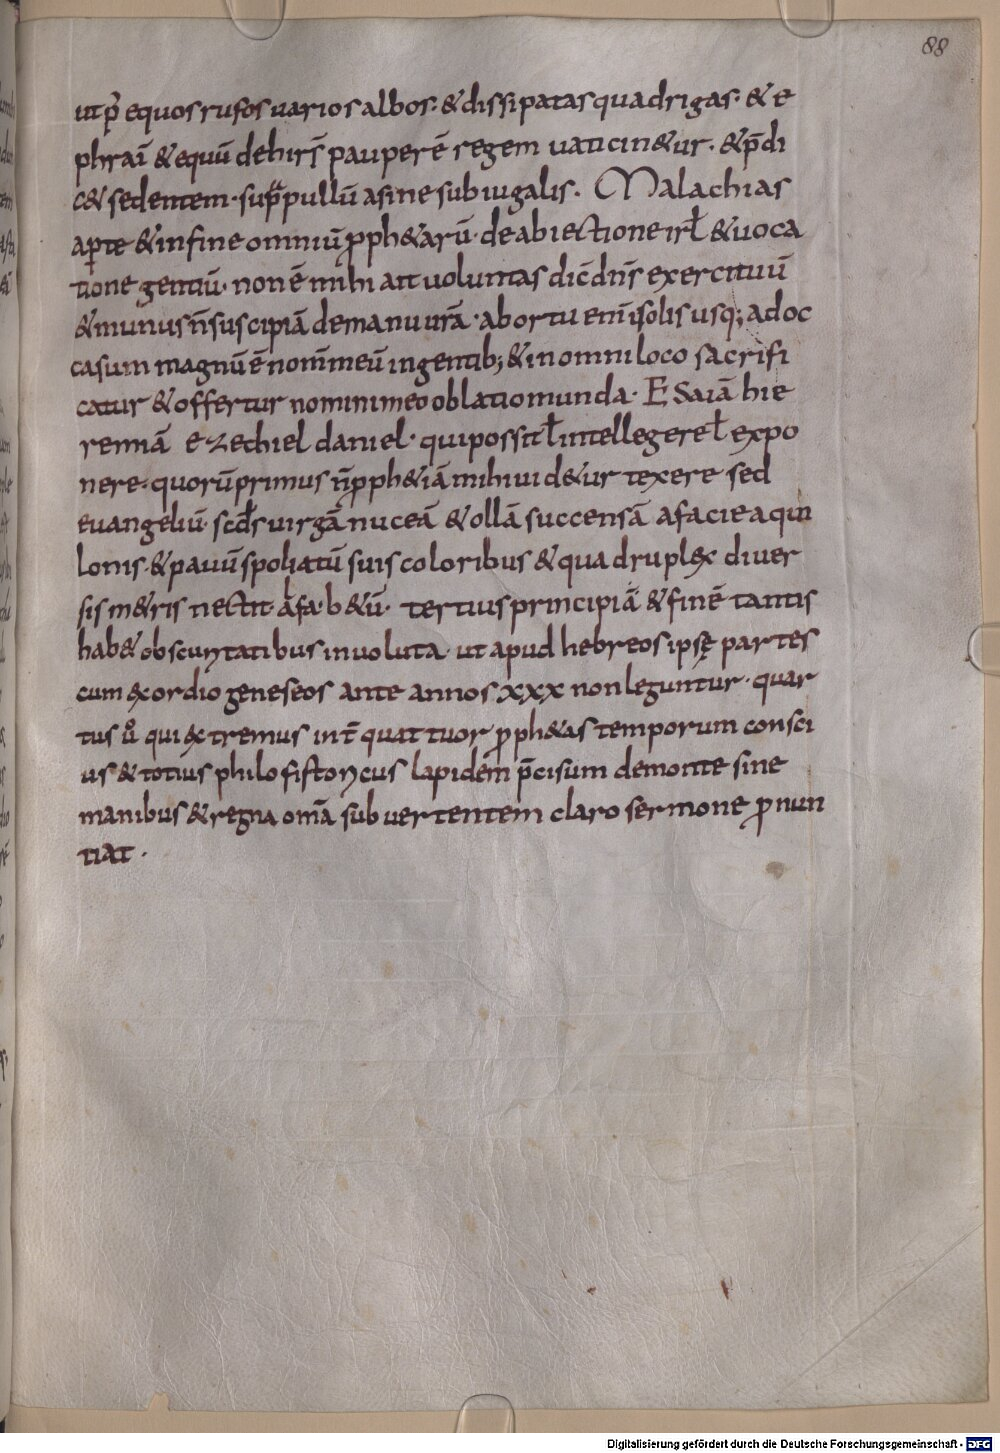 88
ut p̉ equos rufos uarios albos· & dissipatas quadrigas· & e
phraī & equū de hirs̄ pauperē regem uaticin&ur· & p̄di
c& sedentem· supͣ pullū asine subiugalis· Malachias
aꝑte & in fine omniū ꝓph&arū· de abiectione irł & uoca
tione gentiū· non ē mihi ait uoluntas dic̄ dn̄s exercituū
& munus n̄ suscipiā de manu ur̄a· ab ortu eni͞ solis usq; ad oc
casum magnū ē nom̄ meū in gentib; & in omni loco sacrifi
catur & offertur nomini meo oblatio munda· Esaiā hie
remiā ezechiel daniel· qui possit ł intellegere ł expo
nere· quorū primus n̄ ꝓph&iā mihi uid&ur texere sed
euangeliū· scd̄s uirgā nuceā & ollā succensā a facie aqui
lonis· & pauū spoliatū suis coloribus & quadruplex diuer
sis m&ris nectit· alfa·b&ū· tertius principiā & finē tantis
hab& obscuritatibus inuoluta· ut apud hebreos ipsę partes
cum exordio geneseos ante annos xxx non leguntur· quar
tus ů qui extremus int̄ quattuor ꝓph&as temporum consci
us & totius philosistoricus lapidem p̄cisum de monte sine
manibus & regna om̄a subuertentem claro sermone ꝓnun
tiat·
Digitalisierung gefördert durch die Deutsche Forschungsgemeinschaft - DFG